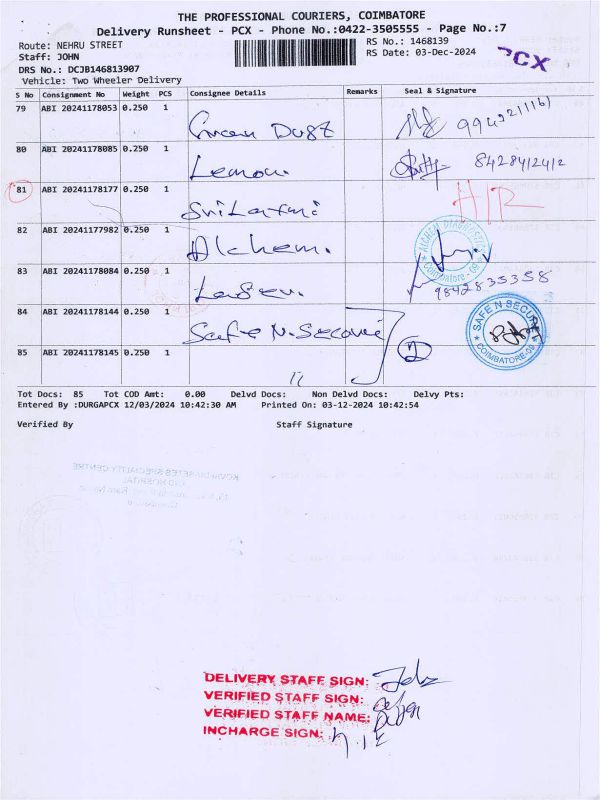 THE PROFESSIONAL COURIERS, COIMBATORE
Delivery Runsheet - PCX - Phone No.:0422-3505555 - Page No.:7
Route: NEHRU STREET
RS No.: 1468139
Staff: JOHN
RS Date: 03-Dec-2024
PCX
DRS No.: DCJB146813907
Vehicle: Two Wheeler Delivery
S No Consignment No Weight PCS Consignee Details Remarks Seal & Signature
79 ABI 20241178053 0.250 1
80 ABI 20241178085 0.250 1 Lemon. 8428412412
81 ABI 20241178177 0.250 1 H/R
82 ABI 20241177982 0.250 1 Alchem.
ALCHEM DIAGNOSTICS
Coimbatore - 09
83 ABI 20241178084 0.250 1 9842835358
84 ABI 20241178144 0.250 1 Safe N. Secure
SAFE N SECURE
COIMBATORE-09
85 ABI 20241178145 0.250 1 11 2
Tot Docs: 85 Tot COD Amt: 0.00 Delvd Docs: Non Delvd Docs: Delvy Pts:
Entered By :DURGAPCX 12/03/2024 10:42:30 AM Printed On: 03-12-2024 10:42:54
Verified By Staff Signature
DELIVERY STAFF SIGN: John
VERIFIED STAFF SIGN:
VERIFIED STAFF NAME:
INCHARGE SIGN: